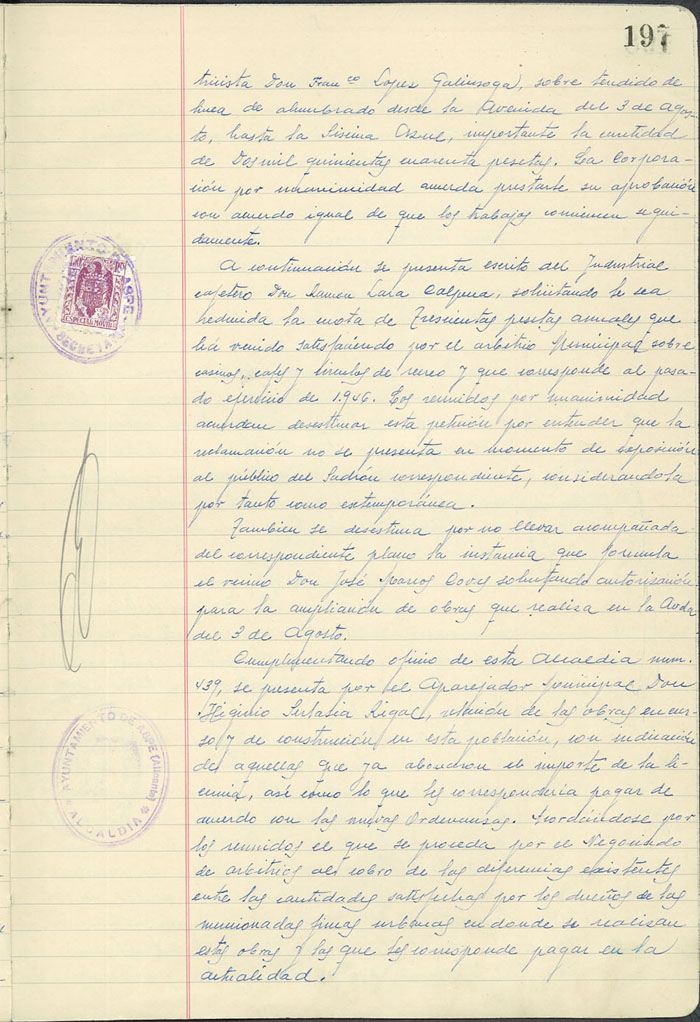 197
tricista Don Fran^co Lopez Galinsoga), sobre tendido de
linea de alumbrado desde la Avenida del 3 de Agos-
to, hasta la Sirena Azul, importante la cantidad
de Dos mil quinientas cuarenta pesetas. La Corpora-
ción por unanimidad acuerda prestarle su aprobación
con acuerdo igual de que los trabajos comiencen segui-
damente.
A continuación se presenta escrito del Industrial
cafetero Don Ramon Lara Calpena, solicitando le sea
reducida la cuota de Trescientas pesetas anuales que
ha venido satisfaciendo por el arbitrio Municipal sobre
casinos, cafes y circulos de recreo y que corresponde al pasa-
do ejercicio de 1.946. Los reunidos por unanimidad
acuerdan desestimar esta petición por entender que la
reclamación no se presenta en momento de exposición
al público del Padrón correspondiente, considerandola
por tanto como extemporánea.
Tambien se desestima por no llevar acompañada
del correspondiente plano la instancia que formula
el vecino Don José Marcos Coves solicitando autorización
para la ampliación de obras que realiza en la Avda
del 3 de Agosto.
Cumplimentando oficio de esta Alcaldia num.
439, se presenta por el Aparejador Municipal Don
Higinio Perlasia Rigal, relación de las obras en cur-
so y de construcción en esta población, con indicación
de aquellas que ya abonaron el importe de la li-
cencia, asi como lo que les corresponderia pagar de
acuerdo con las nuevas Ordenanzas. Acordándose por
los reunidos el que se proceda por el Negociado
de arbitrios al cobro de las diferencias existentes
entre las cantidades satisfechas por los dueños de las
mencionadas fincas urbanas en donde se realizan
estas obras y las que les corresponde pagar en la
actualidad.
AYUNTAMIENTO DE ASPE
SECRETARIA
ESPECIAL MOVIL
AYUNTAMIENTO DE ASPE (Alicante)
ALCALDIA